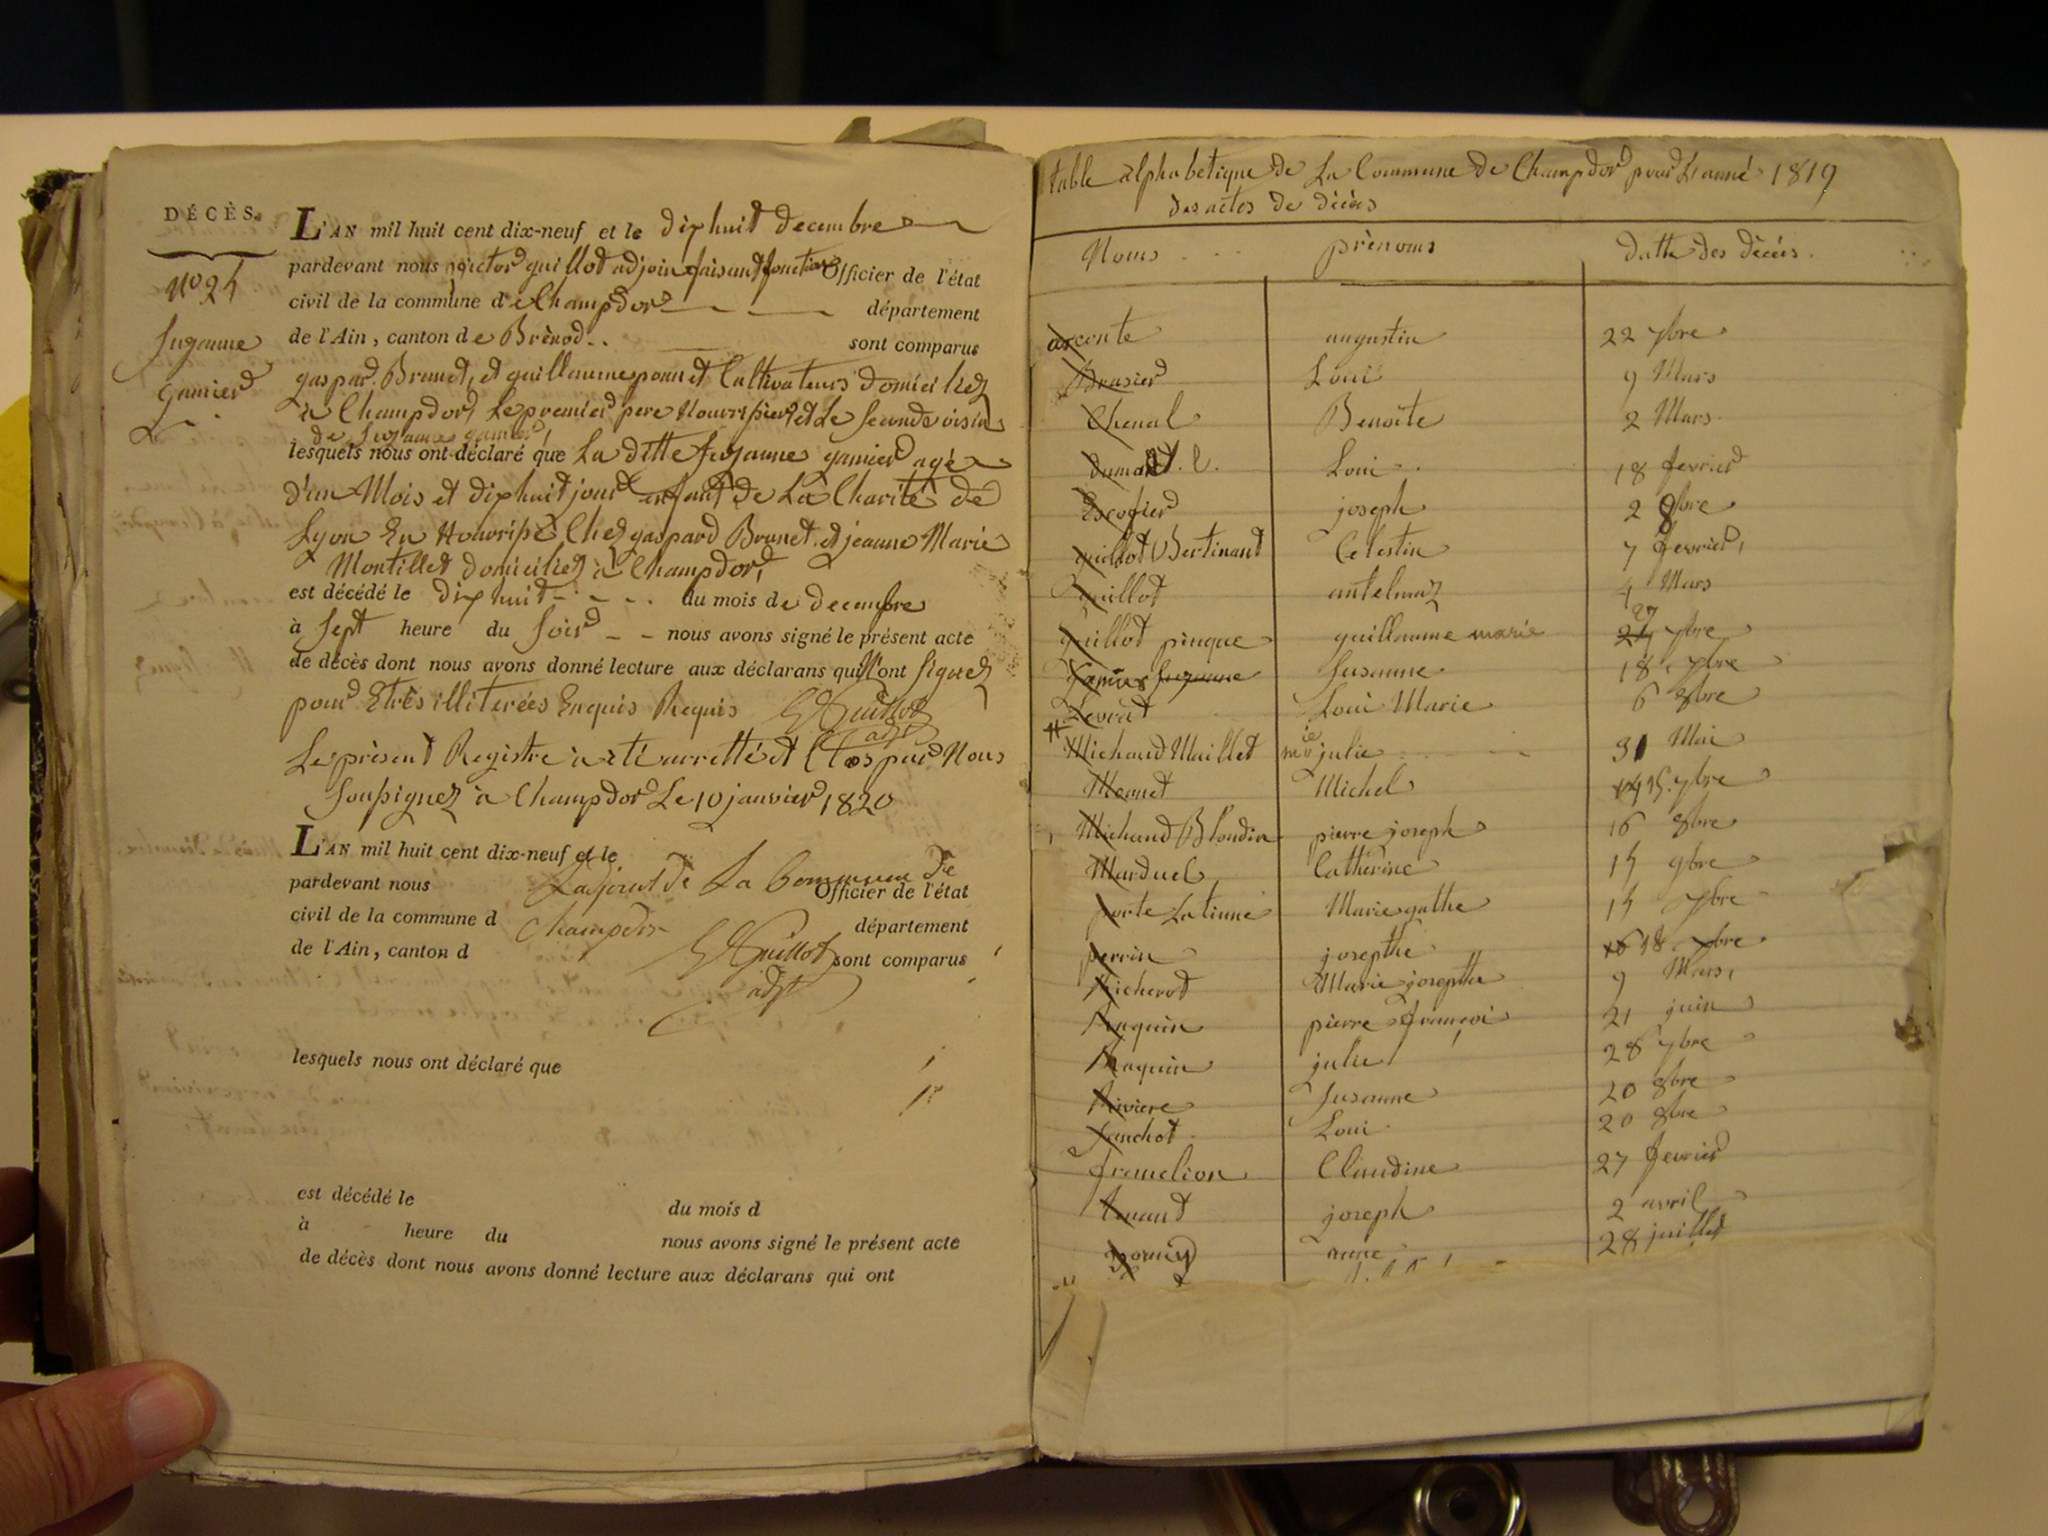 DÉCÈS.
N° 24
Suzanne
Garnier
L'AN mil huit cent dix-neuf et le dixhuit decembre
pardevant nous victor guillot adjoin faisant fonction Officier de l'état
civil de la commune de Champdor département
de l'Ain, canton de Brènod.. sont comparus
gaspard Brunet, et guillaume ponnet Cultivateurs domiciliez
à Champdor, Le premier pere Nourrisier et Le Second voisin
de Suzanne garnier
lesquels nous ont déclaré que La ditte Suzanne garnier agée
d'un Mois et dixhuit jour enfant de La Charité de
Lyon En Nourrise Chez gaspard Brunet et jeanne Marie
Montillet domiciliez à Champdor,
est décédé le dixhuit du mois de decembre
à Sept heure du Soir nous avons signé le présent acte
de décès dont nous avons donné lecture aux déclarans qui N'ont Signez
pour Etres illiterées Enquis Requis Guillot
adjt
Le prèsent Registre à èté arretté et Clos par Nous
Soussignez à Champdor Le 10 janvier 1820
L'AN mil huit cent dix-neuf et le
pardevant nous L'adjoint de La Commune De Officier de l'état
civil de la commune d Champdor département
de l'Ain, canton d Guillot sont comparus
adjt
lesquels nous ont déclaré que
est décédé le du mois d
à heure du nous avons signé le présent acte
de décès dont nous avons donné lecture aux déclarans qui ont
table alphabetique de La Commune de Champdor pour L'anné 1819
des actes de décès
Noms prènoms datte des décès.
arconte augustin 22 7bre
Brasier Loui 9 Mars
Chenal Benoite 2 Mars
dumont Loui 18 fevrier
Escofier joseph 2 8bre
guillot Bertinand Celestin 7 fevrier
guillot antelme 4 Mars
guillot pinque guillaume marie 27 7bre
Garnier Suzanne Susanne 18 Xbre
Levrat Loui Marie 6 8bre
Michaud Maillet mie julie 31 Mai
Monnet Michel 15 7bre
Michaud Blondin pierre joseph 16 8bre
Marduel Catherine 15 9bre
porte Latinne Marie gathe 15 Xbre
perrin josepthe 18 Xbre
Richerot Marie josepthe 9 Mars
Raquin pierre françoi 21 juin
Raquin julie 28 7bre
Riviere Susanne 20 8bre
Sanchot Loui 20 8bre
Claudine 27 fevrier
joseph 2 avril
anne 28 juillet